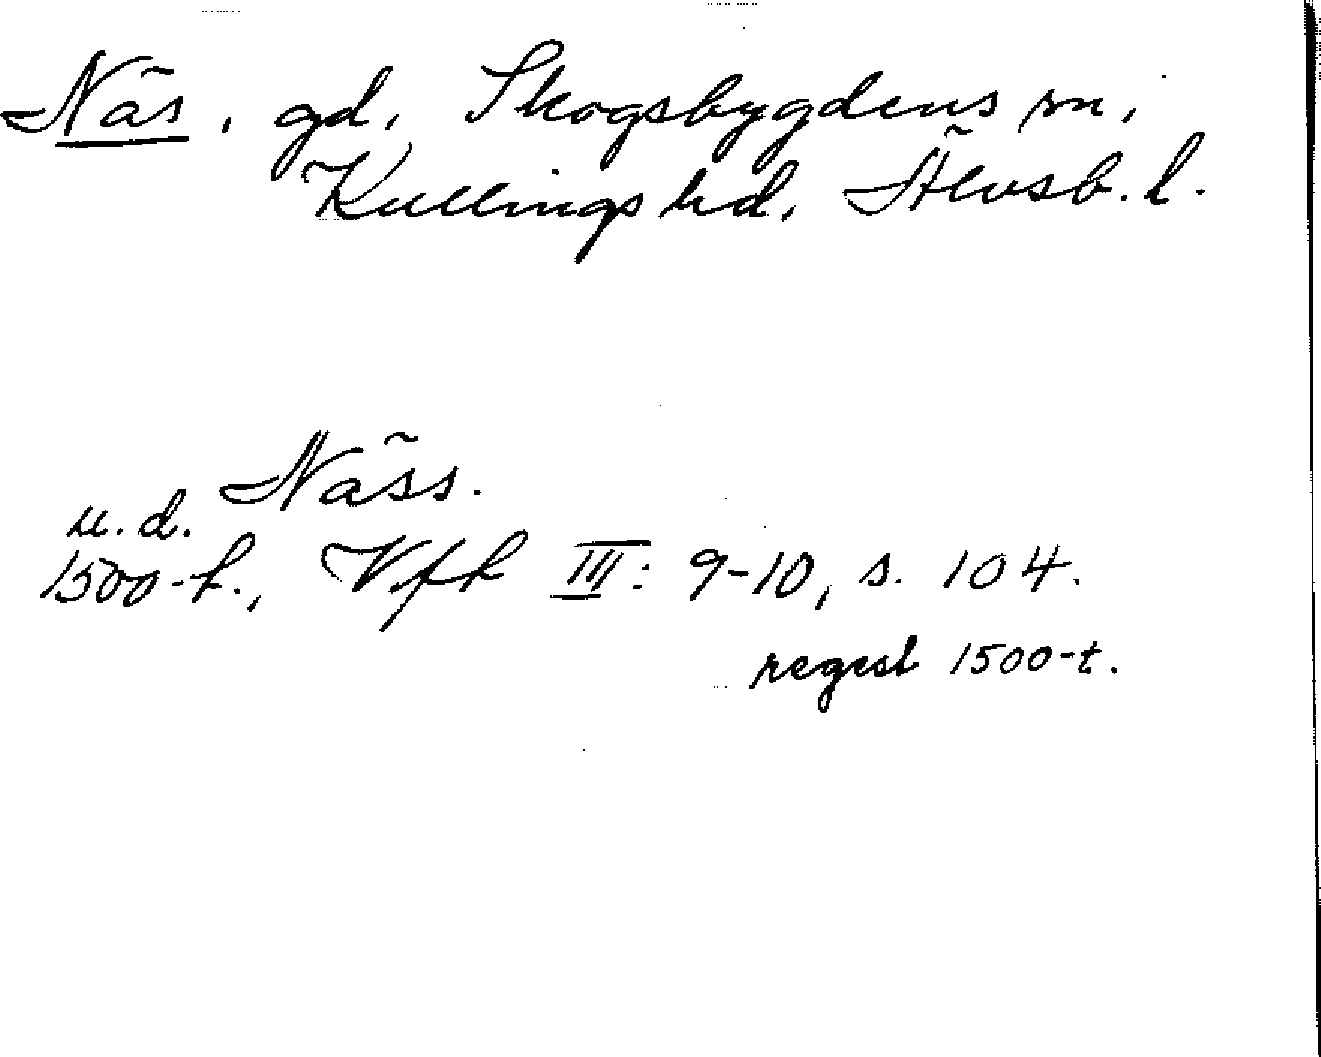 Näs, gd, Skogsbygdens sn,
Kullings hd, Älvsb. l.
Näss.
u. d.
1500-t., Vft III: 9-10, s. 104.
regest 1500-t.